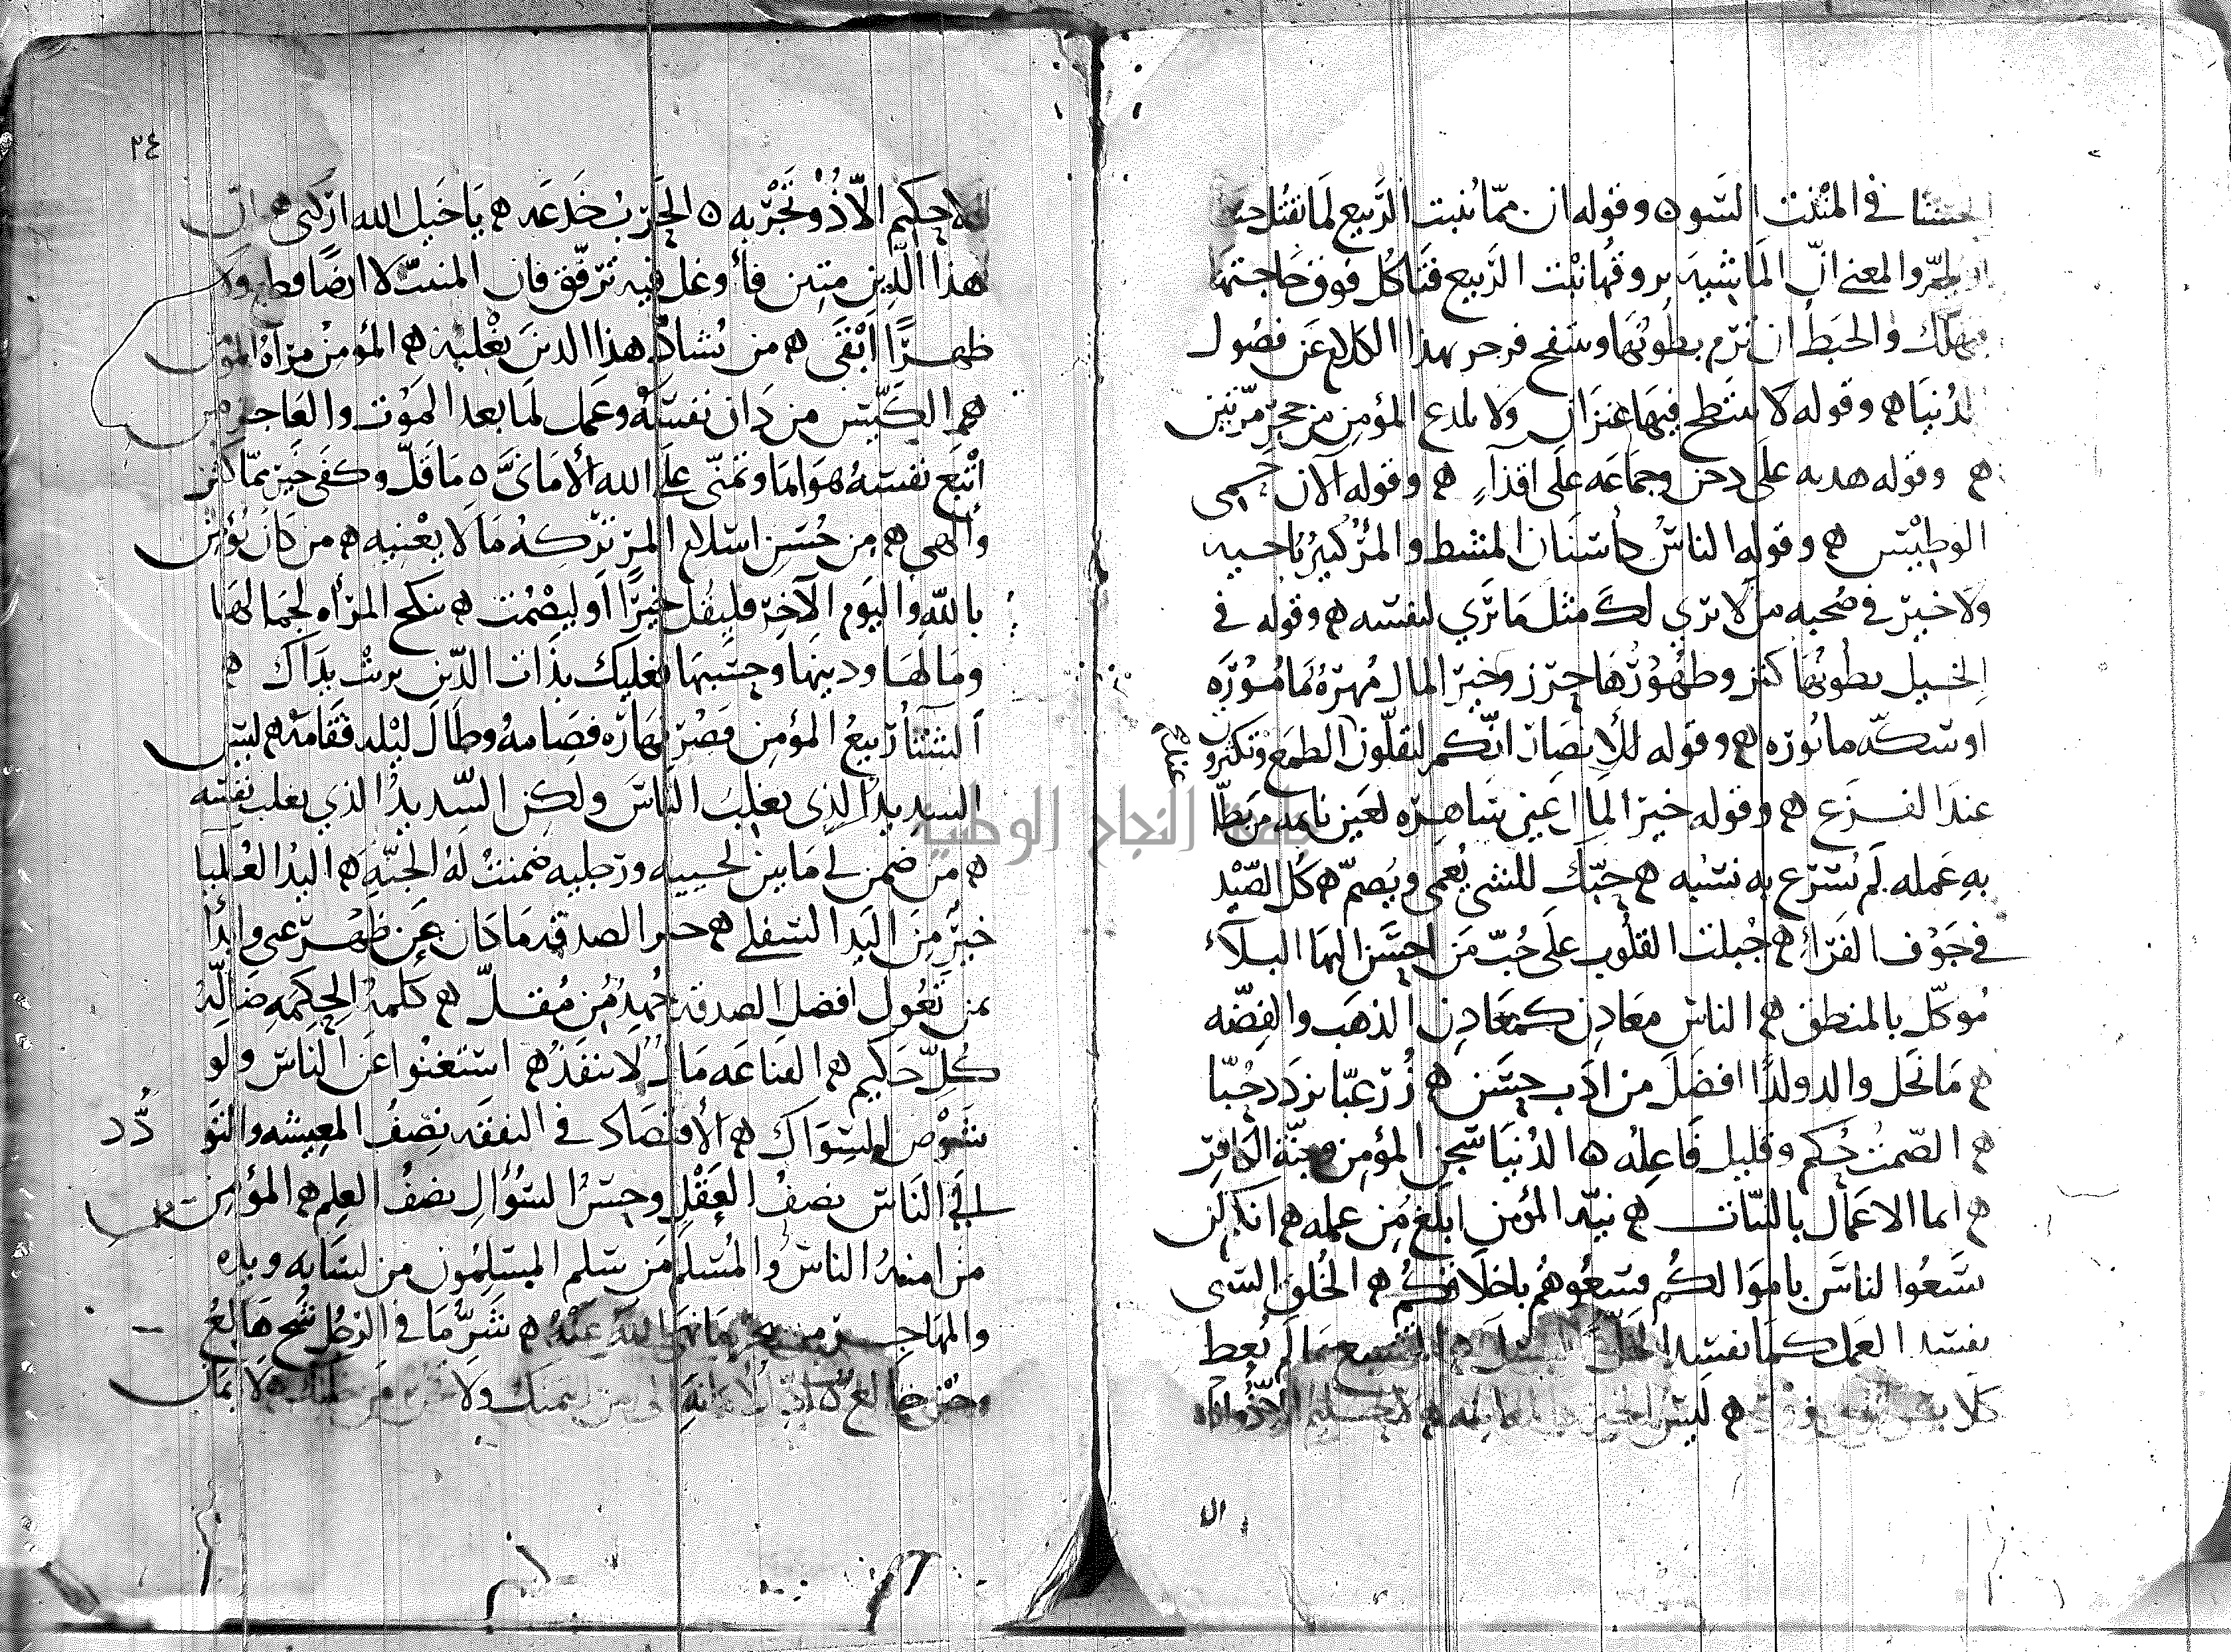 الحسنا في المنبت السوء ۵ وقوله ان مما ينبت الربيع لما يقتل حبطا
او يلم والمعنى ان الماشية يروقها نبت الربيع فتاكل فوق حاجتها
فتهلك والحبط ان ترم بطونها وتنتفخ فزجر بهذا الكلام عن فضول
الدنيا ه وقوله لا ينتطح فيها عنزان ولا يلدغ المؤمن من جحر مرتين
ه وقوله هدنه على دخن وجماعه على اقذاء ه وقوله الآن حمى
الوطيس ه وقوله الناس كاسنان المشط والمرء كثير باخيه
ولا خير في صحبه من لا يرى لك مثل ما ترى لنفسه ه وقوله في
الخيل بطونها كنز وظهورها حرز وخير المال مهرة مامورة
او سكة مابورة ه وقوله للأنصار انكم لتقلون عند الطمع وتكثرون
عند الفزع ه وقوله خير المال عين ساهره لعين نائمه من بطا
به عمله لم يسرع به نسبه ه حبك للشى يعمى ويصم ه كل الصيد
في جوف الفرإ ه جبلت القلوب على حب من احسن اليها البلآء
موكل بالمنطق ه الناس معادن كمعادن الذهب والفضه
ه ما نحل والد ولدا افضل من ادب حسن ه زر غبا تزدد حبا
ه الصمت حكم وقليل فاعله ه الدنيا سجن المؤمن وجنة الكافر
ه انما الاعمال بالنيات ه نية المؤمن ابلغ من عمله ه انكم لن
تسعوا الناس باموالكم فسعوهم باخلاقكم ه الخلق السى
يفسد العمل كما يفسد الخل العسل ه المتشبع بما لم يعط
كلابس ثوبى زور ه ليس الخبر كالمعاينه ه لا حليم الا ذو اناه
ولا حكيم الا ذو تجربه ۵ الحرب خدعه ه يا خيل الله اركبى ه ان
٢٤
هذا الدين متين فأوغل فيه برفق فان المنبت لا ارضا قطع ولا
ظهرا ابقى ه من يشاد هذا الدين يغلبه ه المؤمن مرآه المؤمن
ه الكيس من دان نفسه وعمل لما بعد الموت والعاجز من
اتبع نفسه هواها وتمنى على الله الأمانى ۵ ما قل وكفى خير مما كثر
وألهى ه من حسن اسلام المرء تركه ما لا يعنيه ه من كان يؤمن
بالله واليوم الآخر فليقل خيرا او ليصمت ه تنكح المرأه لجمالها
ومالها ودينها وحسبها فعليك بذات الدين تربت يداك ه
الشتاء ربيع المؤمن قصر نهاره فصامه وطال ليله فقامه ه ليس
السديد الذى يغلب الناس ولكن السديد الذي يغلب نفسه
ه من ضمن لي ما بين لحييه ورجليه ضمنت له الجنة ه اليد العليا
خير من اليد السفلى ه خير الصدقه ما كان عن ظهر غنى وابدأ
بمن تعول افضل الصدقة جهد من مقل ه كلمة الحكمه ضالة
كل حكيم ه القناعه مال لا ينفد ه استغنوا عن الناس ولو
بشوص المسواك ه الأقتصاد في النفقه نصف المعيشه والتودد
الى الناس نصف العقل وحسن السؤال نصف العلم ه المؤمن
من امنه الناس والمسلم من سلم المسلمون من لسانه ويده
والمهاجر من هجر ما نهى الله عنه ه شر ما في الرجل شح هالع
وجبن خالع ۵ اد الأمانه الى من ائتمنك ولا تخن من خانك ه لا يمان